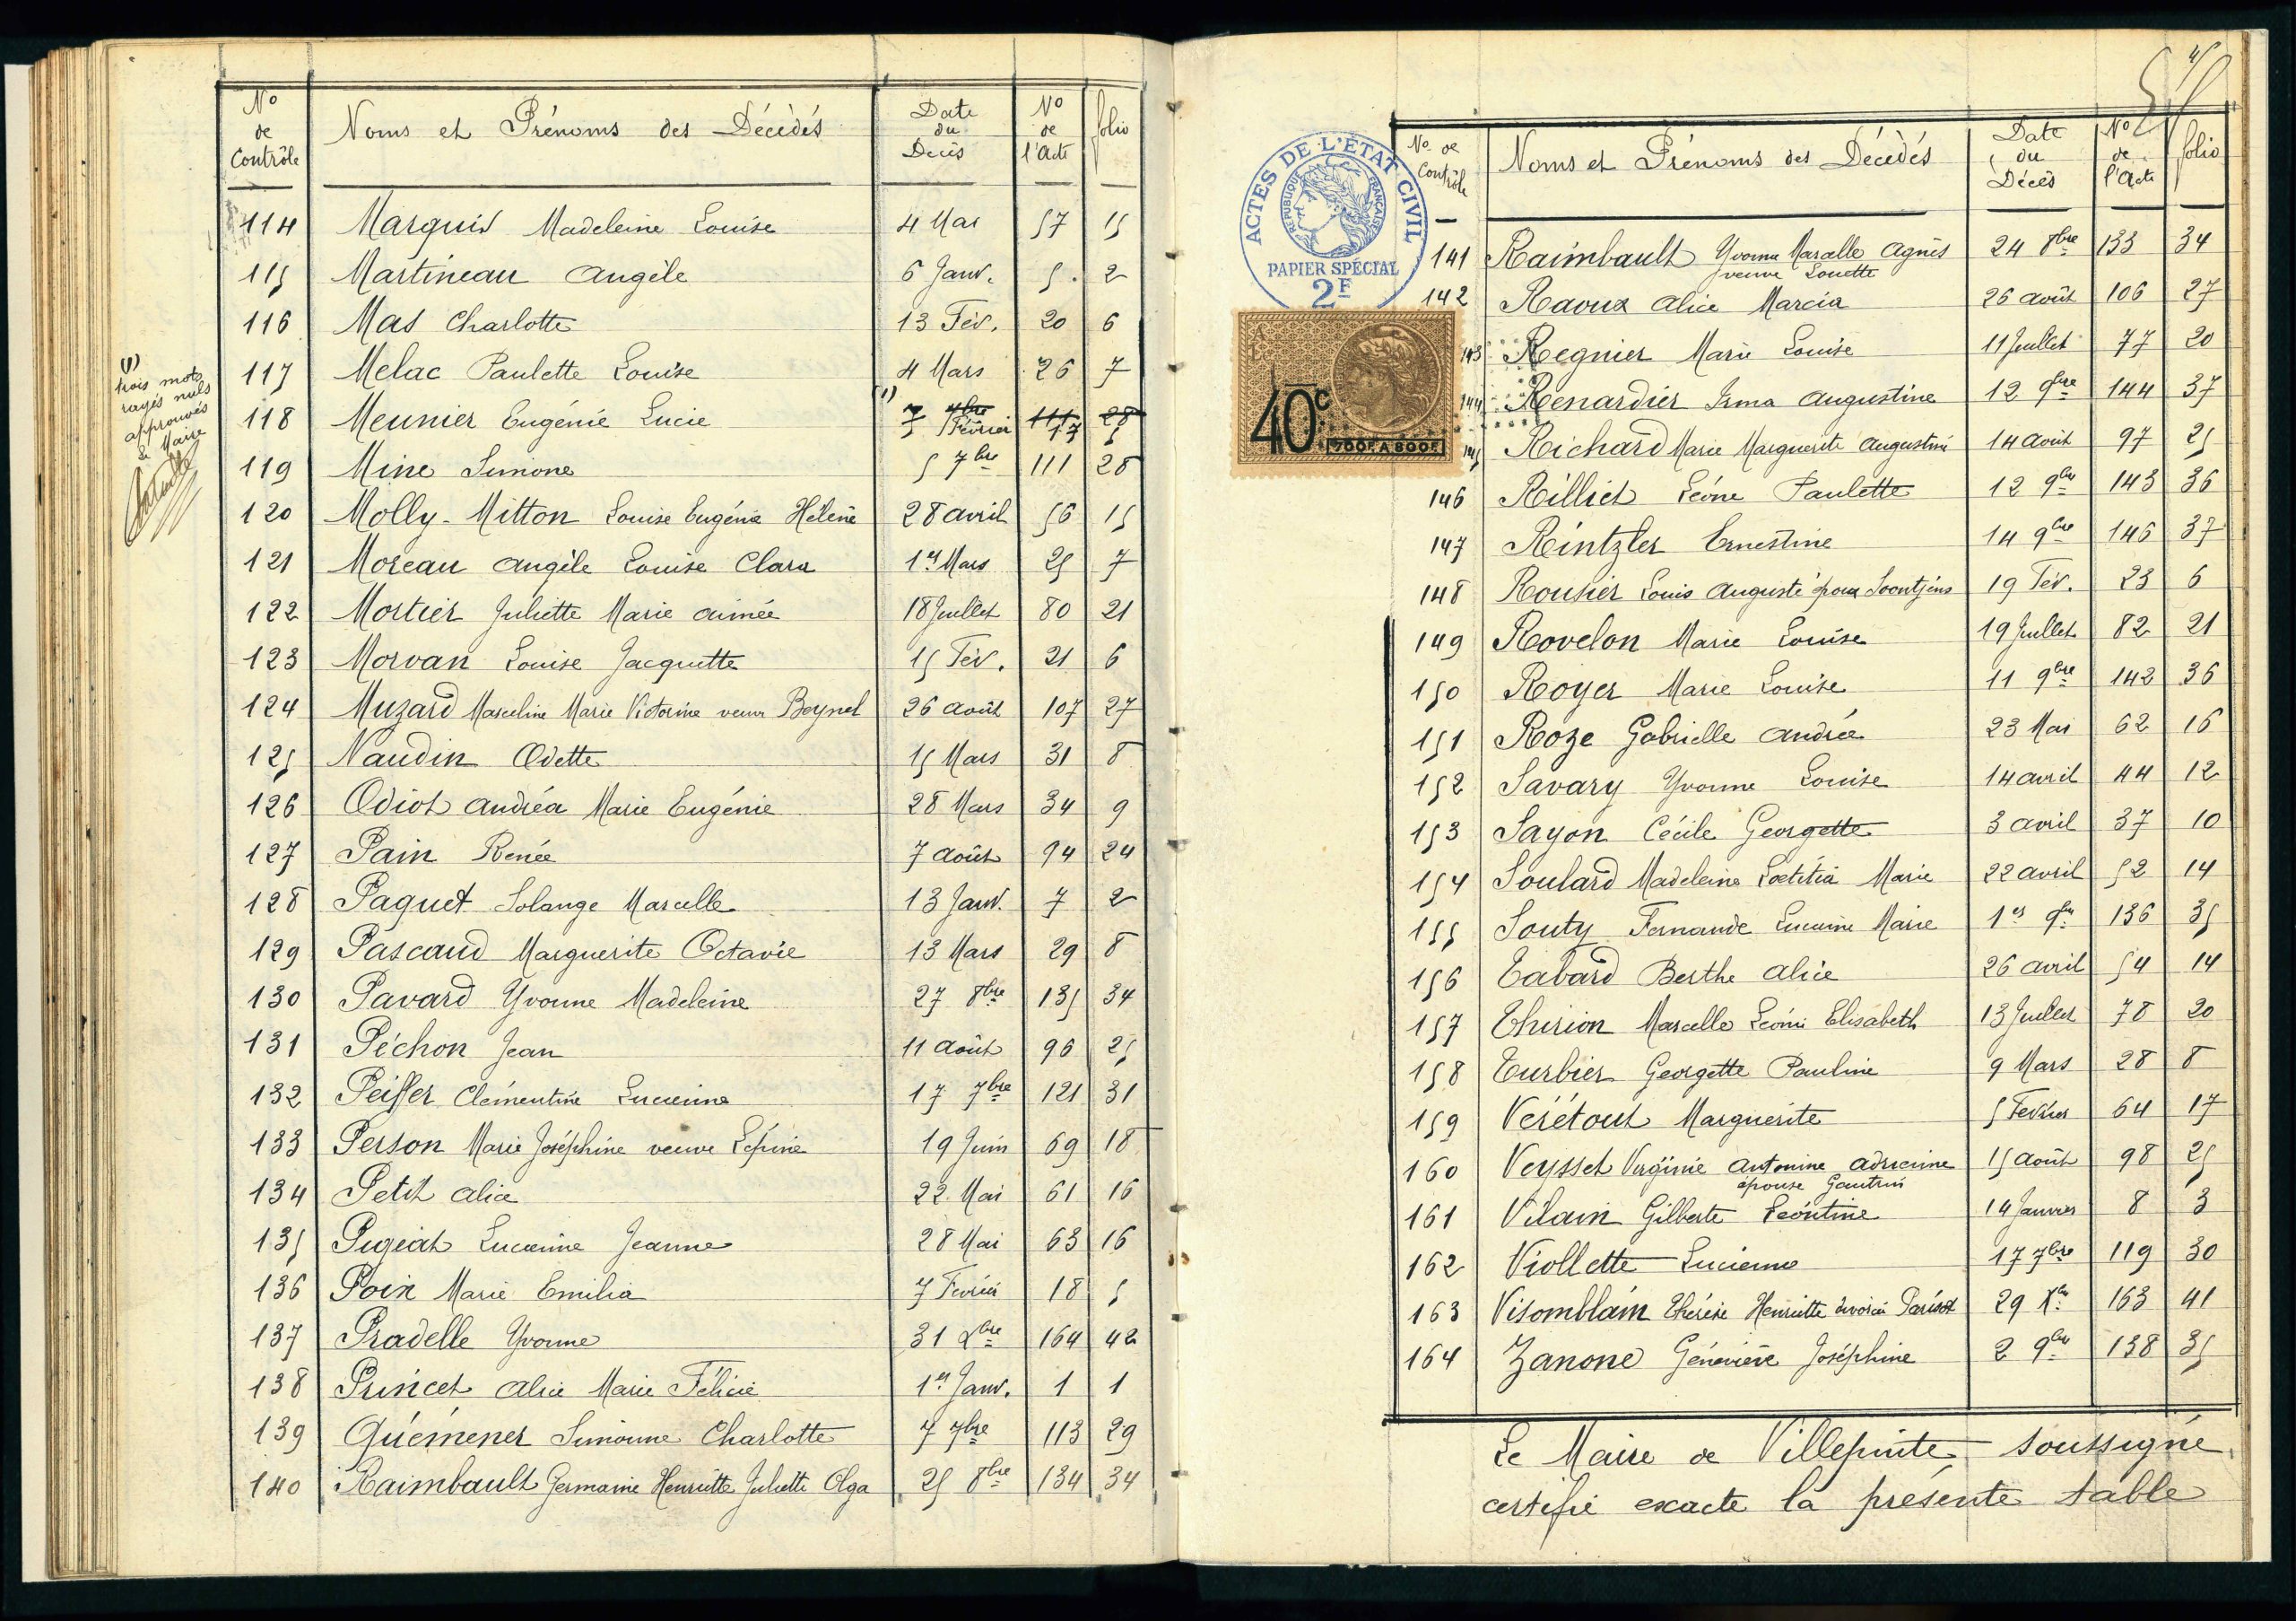 No de Contrôle | Noms et Prénoms des Décédés | Date du Décès | No de l'Acte | folio
114 Marquis Madeleine Louise 4 Mai 57 15
115 Martineau Angèle 6 Janv. 5. 2
116 Mas Charlotte 13 Fév. 20 6
117 Melac Paulette Louise 4 Mars 26 7
(1)
trois mots
rayés nuls
approuvés
Le Maire
118 Meunier Eugénie Lucie (1) 7 7bre 111 28
5 Février 17 5
119 Mine Simone 5 7bre 111 28
120 Molly-Mitton Louise Eugénie Hélène 28 avril 56 15
121 Moreau Angèle Louise Clara 1er Mars 25 7
122 Mortier Juliette Marie Aimée 18 Juillet 80 21
123 Morvan Louise Jacquette 15 Fév. 21 6
124 Muzard Marceline Marie Victorine veuve Beynel 26 août 107 27
125 Naudin Odette 15 Mars 31 8
126 Odiot Andréa Marie Eugénie 28 Mars 34 9
127 Pain Renée 7 août 94 24
128 Paquet Solange Marcelle 13 Janv. 7 2
129 Pascaud Marguerite Octavie 13 Mars 29 8
130 Pavard Yvonne Madeleine 27 8bre 135 34
131 Péchon Jean 11 août 96 25
132 Peiffer Clémentine Lucienne 17 7bre 121 31
133 Person Marie Joséphine veuve Lépine 19 Juin 69 18
134 Petit Alice 22 Mai 61 16
135 Pigeat Lucienne Jeanne 28 Mai 63 16
136 Poix Marie Emilia 7 Février 18 5
137 Pradelle Yvonne 31 Xbre 164 42
138 Princet Alice Marie Félicie 1er Janv. 1 1
139 Quéméner Simonne Charlotte 7 7bre 113 29
140 Raimbault Germaine Henriette Juliette Olga 25 8bre 134 34
ACTES DE L'ÉTAT CIVIL
RÉPUBLIQUE FRANÇAISE
PAPIER SPÉCIAL
2F
40c
700F. A 800F.
No de Contrôle | Noms et Prénoms des Décédés | Date du Décès | No de l'Acte | folio
141 Raimbault Yvonne Marcelle Agnès 24 8bre 133 34
veuve Louette
142 Raoux Alice Marcia 26 août 106 27
143 Regnier Marie Louise 11 Juillet 77 20
144 Renardier Irma Augustine 12 9bre 144 37
145 Richard Marie Marguerite Augustine 14 août 97 25
146 Rilliet Léone Paulette 12 9bre 143 36
147 Rintzler Ernestine 14 9bre 146 37
148 Rousier Louis Auguste époux Soontjens 19 Fév. 23 6
149 Rovelon Marie Louise 19 Juillet 82 21
150 Royer Marie Louise 11 9bre 142 36
151 Roze Gabrielle Andrée 23 Mai 62 16
152 Savary Yvonne Louise 14 avril 44 12
153 Sayon Cécile Georgette 3 avril 37 10
154 Soulard Madeleine Loetitia Marie 22 avril 52 14
155 Souty Fernande Lucienne Marie 1er 9bre 136 35
156 Tabard Berthe Alice 26 avril 54 14
157 Thirion Marcelle Léonie Elisabeth 13 Juillet 78 20
158 Turbier Georgette Pauline 9 Mars 28 8
159 Verétout Marguerite 5 Février 64 17
160 Veysset Virginie Antonine Adrienne 15 août 98 25
épouse Gautrin
161 Vilain Gilberte Léontine 14 Janvier 8 3
162 Viollette Lucienne 17 7bre 119 30
163 Visomblain Thérèse Henriette divorcée Parisot 29 Xbre 163 41
164 Zanone Géneviève Joséphine 2 9bre 138 35
Le Maire de Villepinte, soussigné,
certifie exacte la présente table